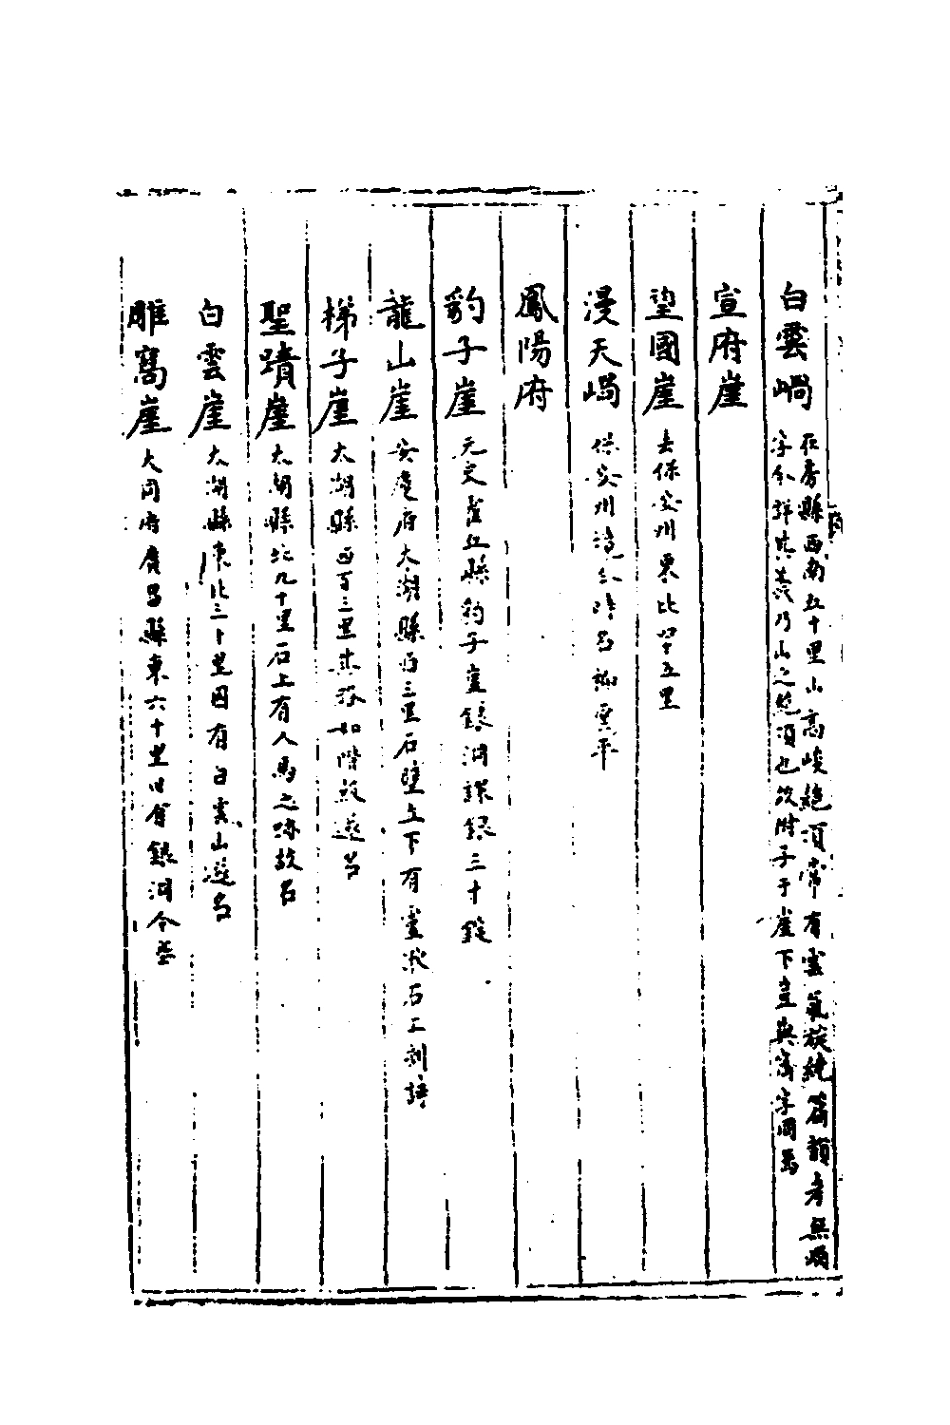 白雲㟮 在房縣西南五十里山高峻絕頂常有雲氣旋繞篇韻考無㟮
字今詳其義乃山之絕頂也故附于崖下豈與窩字同焉
宣府崖
望國崖 去保安州東北四十五里
浸天㟮 保安州境 時名
鳳陽府
豹子崖 元史霍丘縣豹子崖銀洞課銀三十錠
龍山崖 安慶府太湖縣西三里石壁上下有靈湫石上刻諸
梯子崖 太湖縣西百三里其路如階級遂名
聖蹟崖 太湖縣北九十里石上有人馬之跡故名
白雲崖 太湖縣東北三十里因有白雲山遂名
雕窩崖 大同府廣昌縣東六十里旧有銀洞今塞